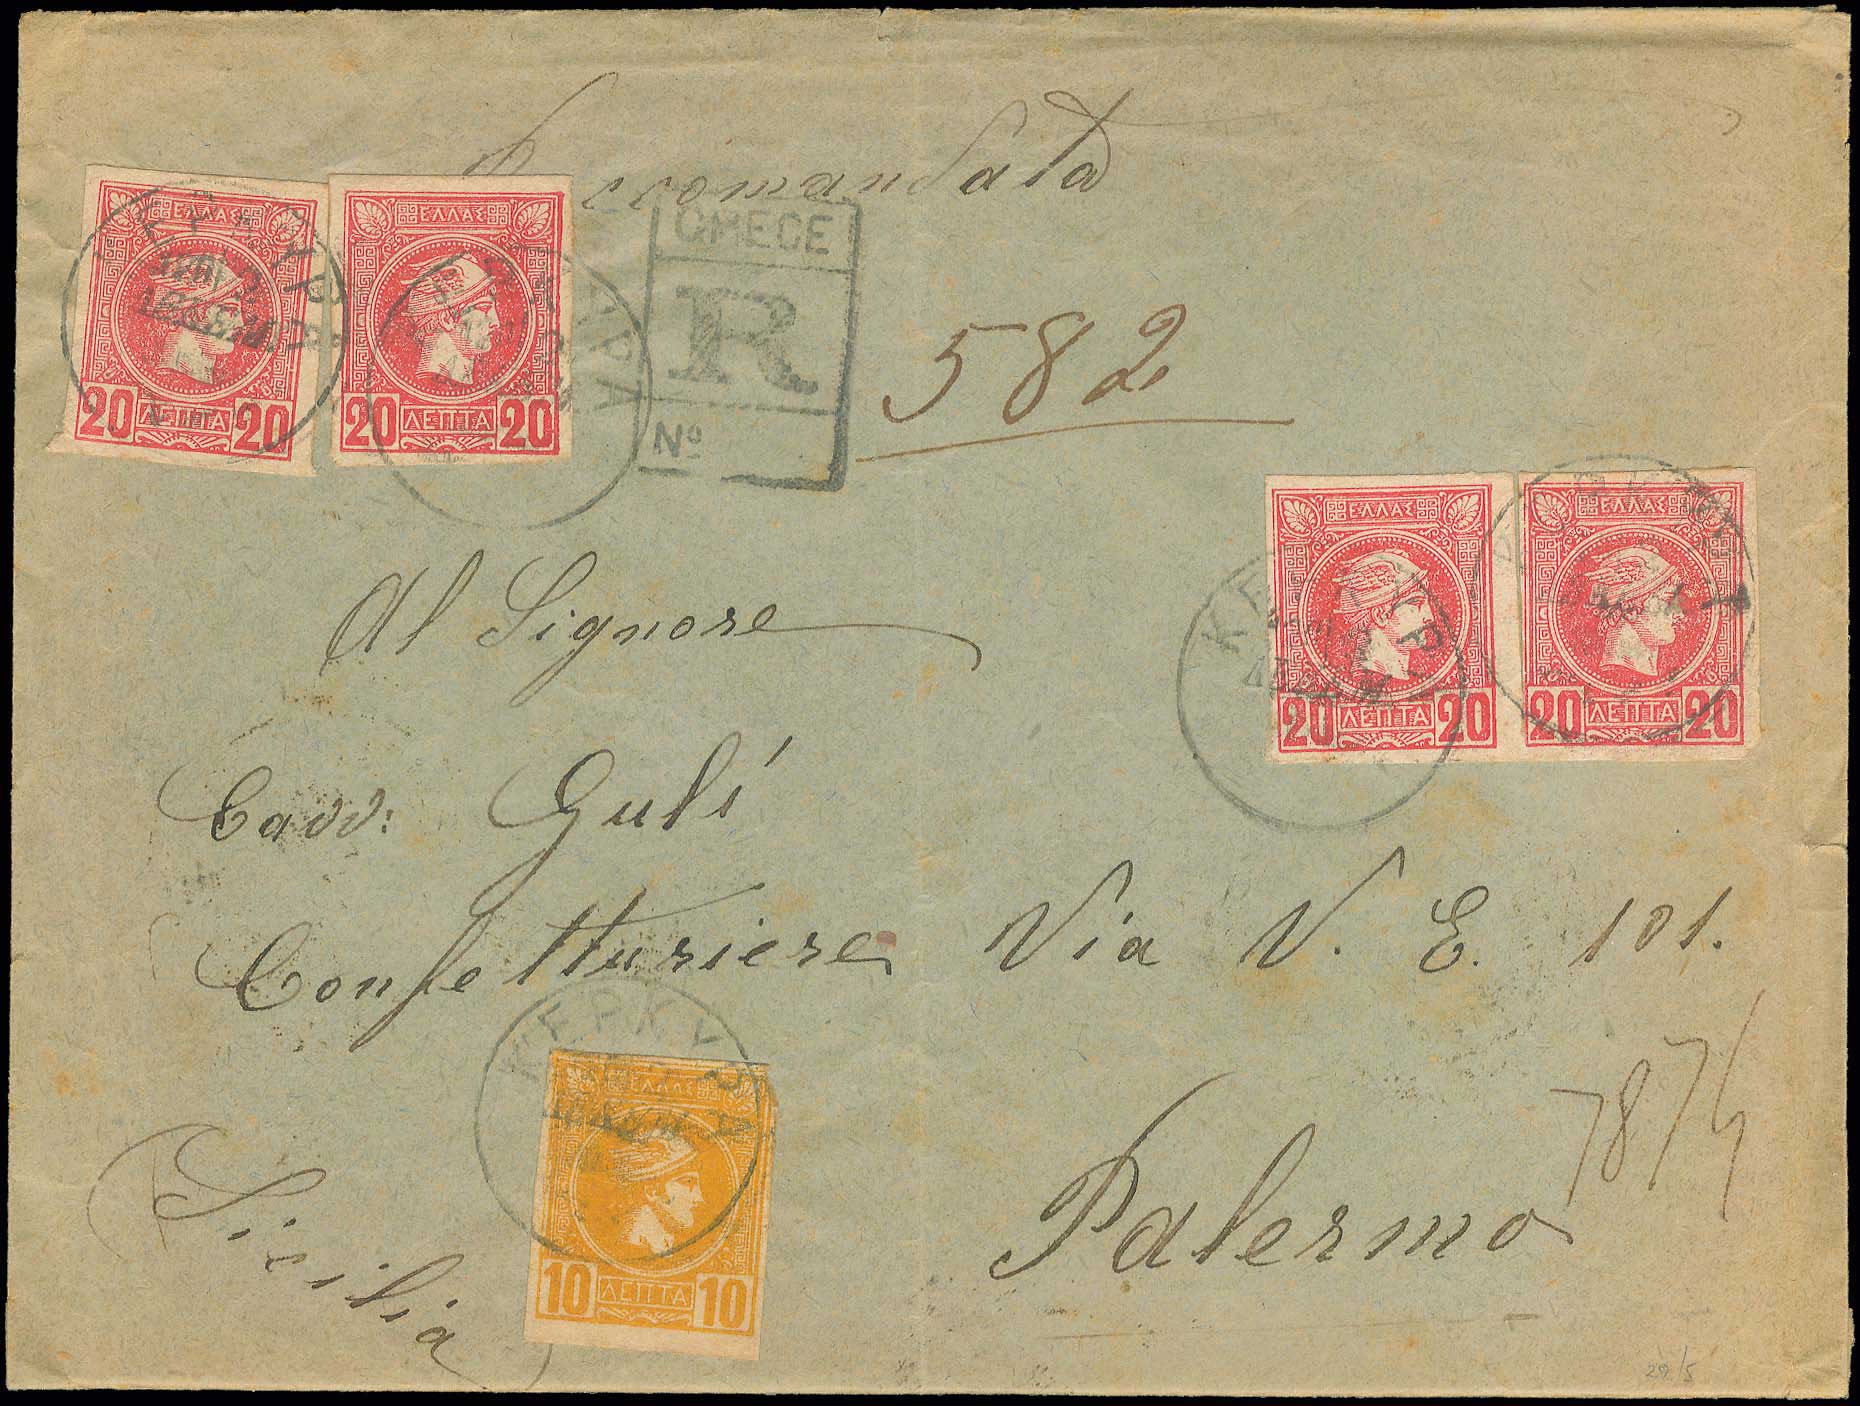 Raccomandata
ΕΛΛΑΣ
20 ΛΕΠΤΑ 20
ΕΛΛΑΣ
20 ΛΕΠΤΑ 20
ΚΕΡΚΥΡΑ
GRECE
R
Nº
582
ΕΛΛΑΣ
20 ΛΕΠΤΑ 20
ΕΛΛΑΣ
20 ΛΕΠΤΑ 20
ΚΕΡΚΥΡ
ΔΕΚΕΜ.
Al Signore
Cavv: Gulì
Confetturiere Via V. E. 101.
ΚΕΡΚΥΡΑ
ΕΛΛΑΣ
10 ΛΕΠΤΑ 10
7874
Palermo
(Sicilia)
29/5